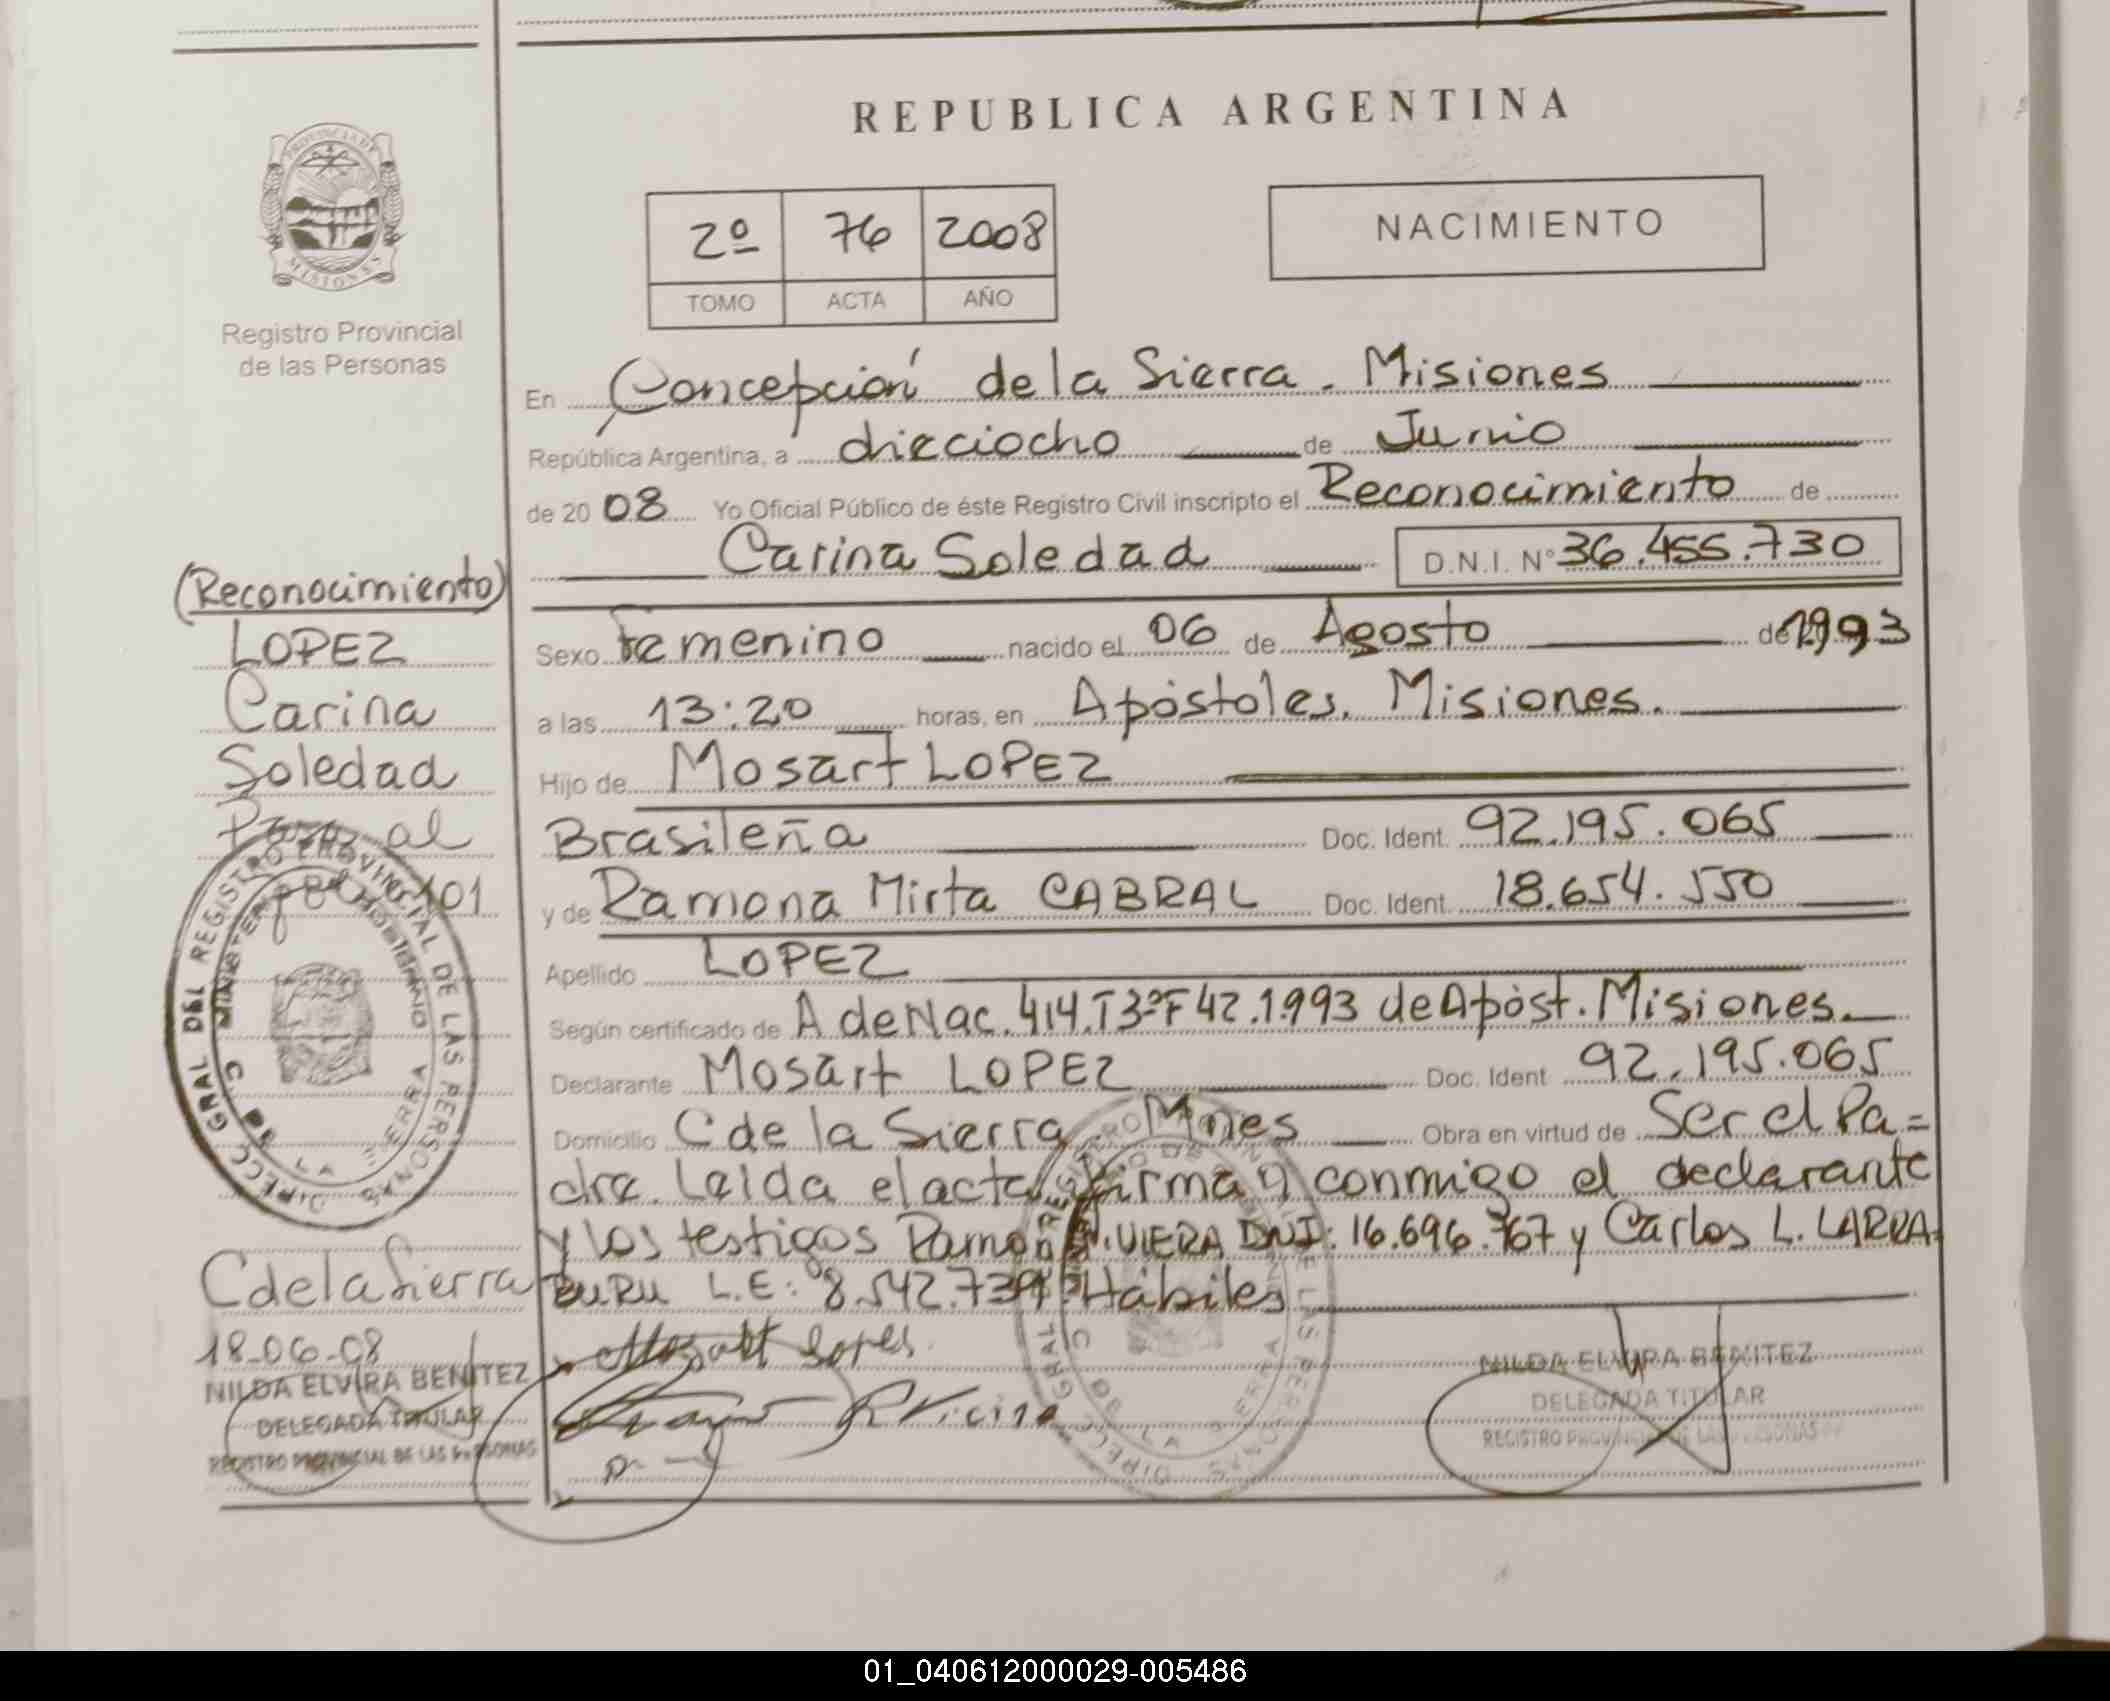 REPUBLICA ARGENTINA
PROVINCIA DE
MISIONES
Registro Provincial
de las Personas
2º 76 2008
TOMO ACTA AÑO
NACIMIENTO
En Concepción de la Sierra. Misiones
República Argentina, a dieciocho de Junio
de 2008 Yo Oficial Público de éste Registro Civil inscripto el Reconocimiento de
Carina Soledad D.N.I. Nº 36.455.730
Sexo Femenino nacido el 06 de Agosto de 1993
a las 13:20 horas, en Apóstoles. Misiones.
Hijo de Mosart LOPEZ
Brasileña Doc. Ident. 92.195.065
y de Ramona Mirta CABRAL Doc. Ident. 18.654.550
Apellido LOPEZ
Según certificado de A de Nac. 414.T3ºF42.1.993 de Apóst. Misiones.
Declarante Mosart LOPEZ Doc. Ident 92.195.065
Domicilio C de la Sierra Mnes Obra en virtud de Ser el Pa=
dre. Leida el acta firman conmigo el declarante
y los testigos Ramón VIERA DNI: 16.696.767 y Carlos L. LARRA=
BURU L.E: 8.542.739 Hábiles
Mosart Lopes
NILDA ELVIRA BENITEZ
DELEGADA TITULAR
REGISTRO PROVINCIAL DE LAS PERSONAS
(Reconocimiento)
LOPEZ
Carina
Soledad
Pasa al
101
DIRECC GRAL DEL REGISTRO PROVINCIAL DE LAS PERSONAS
C de la Sierra
18-06-08
NILDA ELVIRA BENITEZ
DELEGADA TITULAR
REGISTRO PROVINCIAL DE LAS PERSONAS
01_040612000029-005486